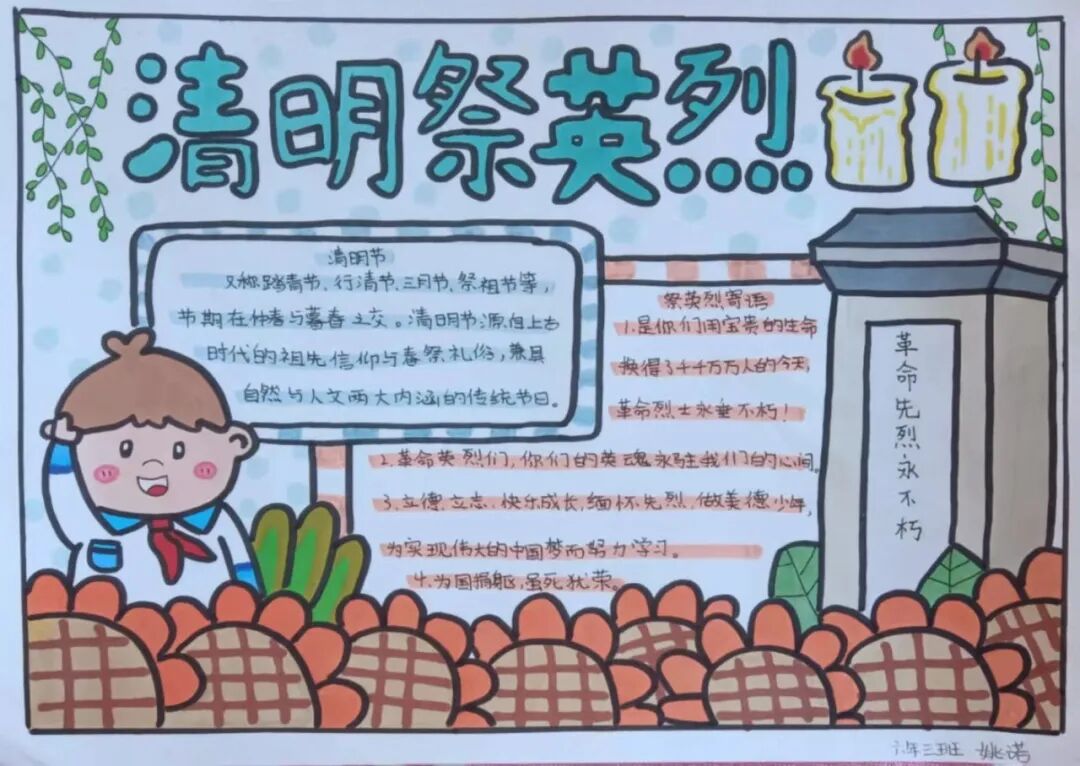 清明祭英烈
清明节
又称踏青节、行清节、三月节、祭祖节等,
节期在仲春与暮春之交。清明节源自上古
时代的祖先信仰与春祭礼俗,兼具
自然与人文两大内涵的传统节日。
祭英烈寄语
1.是你们用宝贵的生命
换得了千千万万人的今天,
革命烈士永垂不朽!
2.革命英烈们,你们的英魂永驻我们的心间。
3.立德立志,快乐成长,缅怀先烈,做美德少年,
为实现伟大的中国梦而努力学习。
4.为国捐躯,虽死犹荣。
革命先烈永不朽
六年三班 姚诺